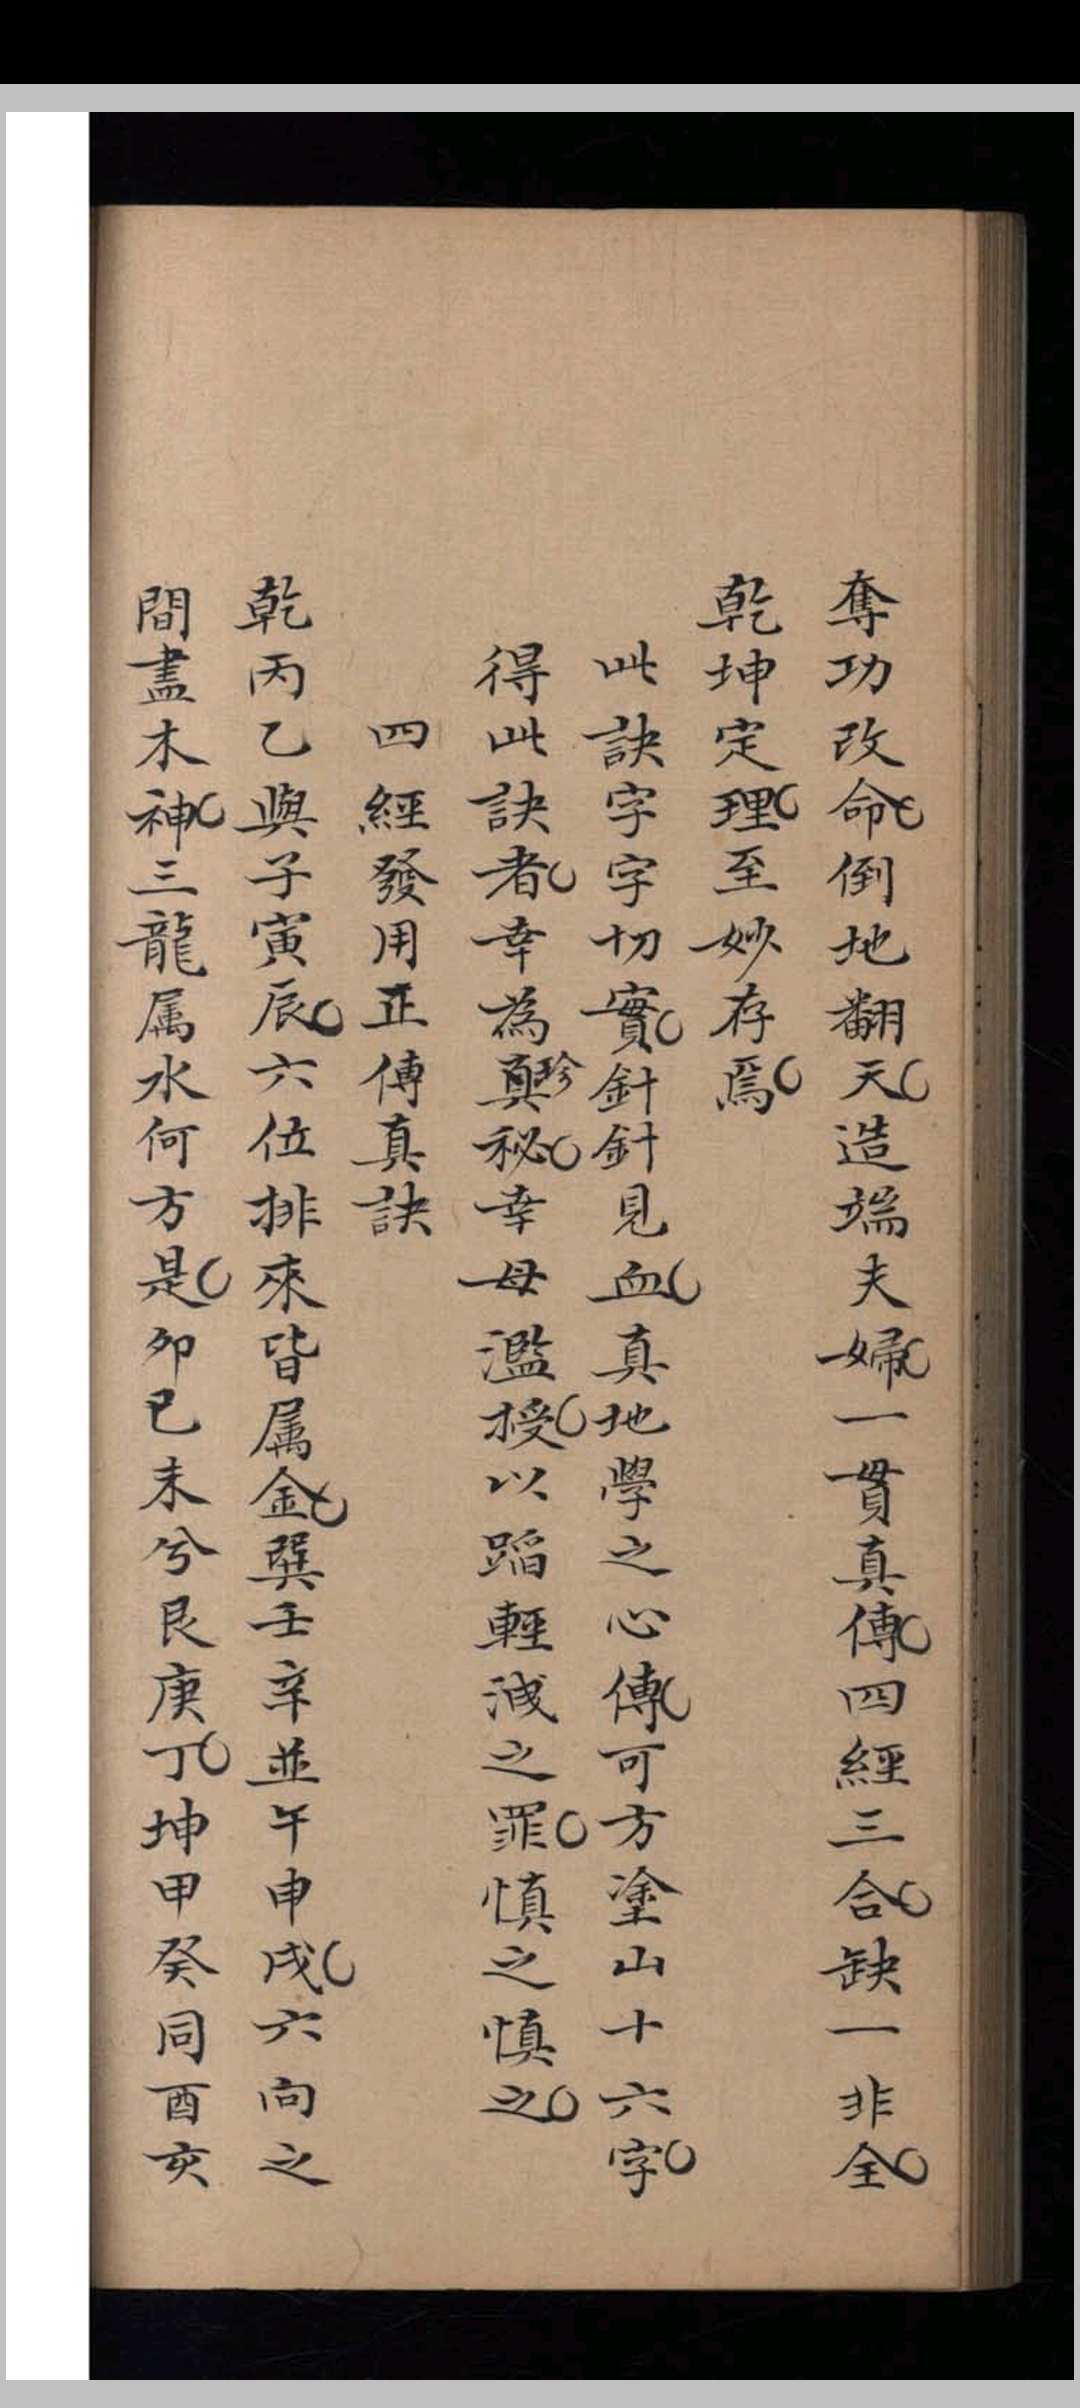 奪功改命倒地翻天造端夫婦一貫真傳四經三合缺一非全
乾坤定理至妙存焉
此訣字字切實針針見血真地學之心傳可方塗山十六字
得此訣者幸為真珍秘幸毋濫授以蹈輕淺之罪慎之慎之
四經發用正傳真訣
乾丙乙與子寅辰六位排來皆属金巽壬辛並午申戌六向之
間盡木神三龍属水何方是卯巳未兮艮庚丁坤甲癸同酉亥